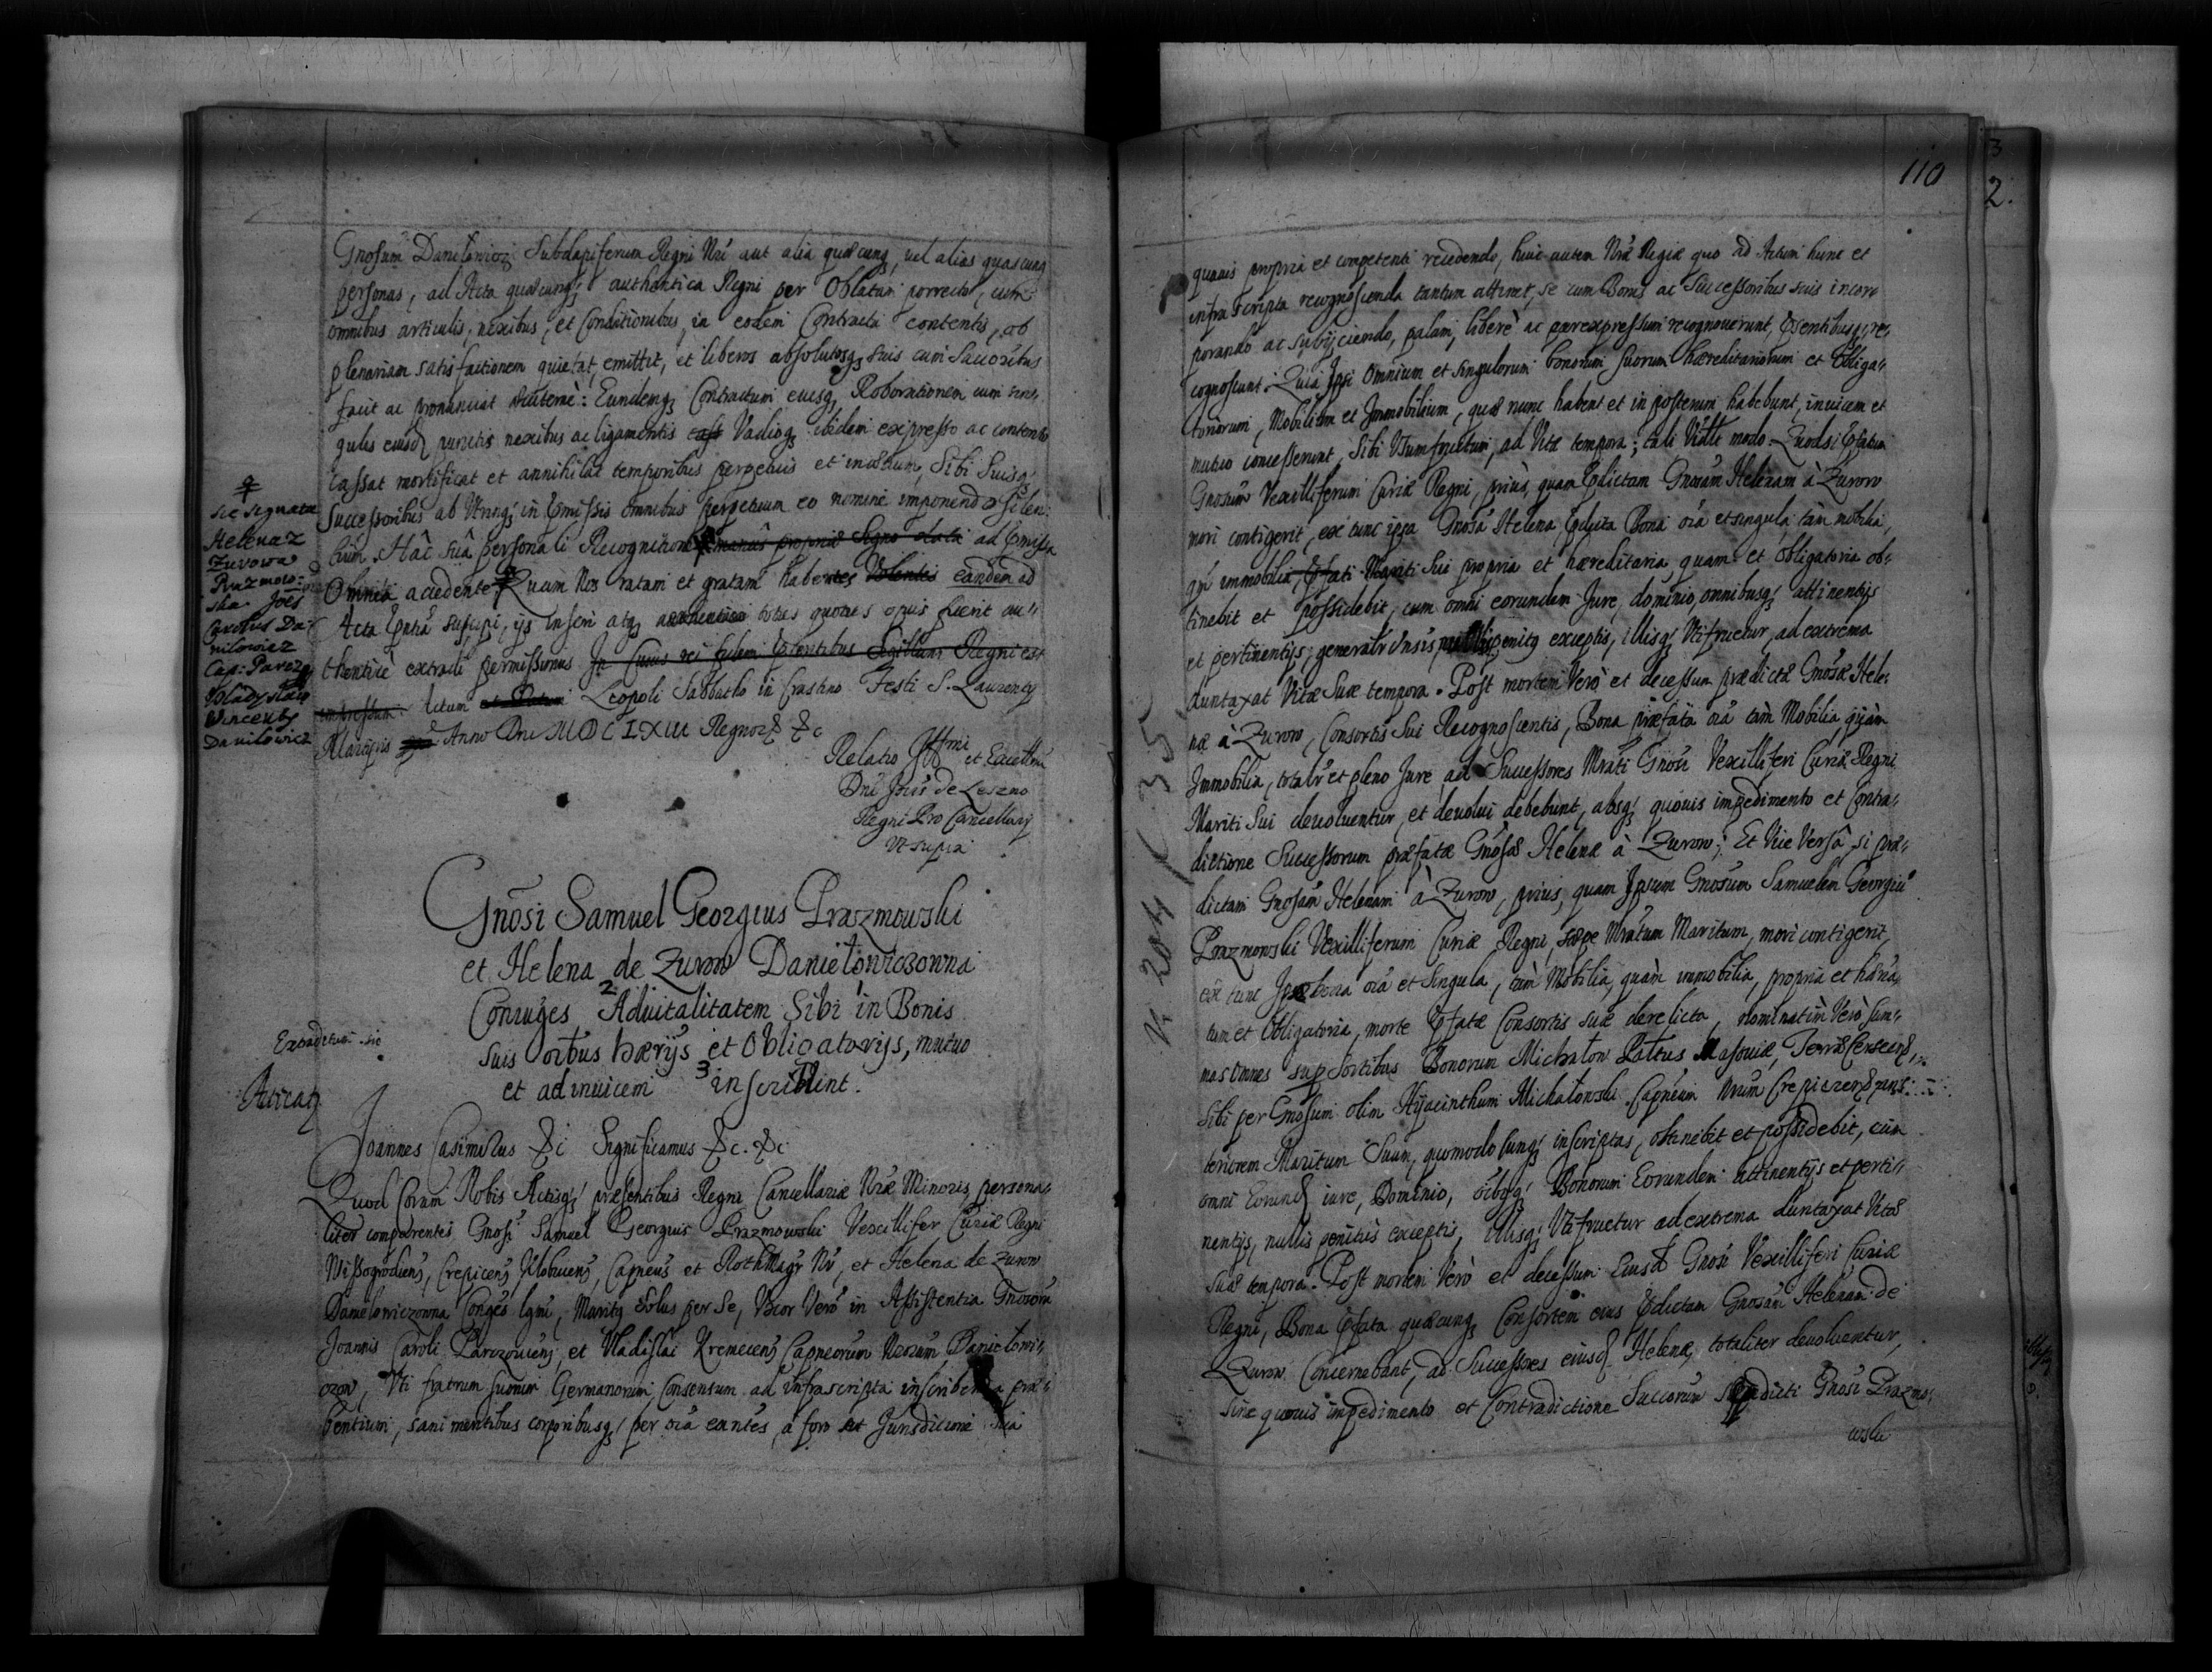 Gnosum Daniłowicz Subdapiferum Regni Nri aut alia quæcunq, vel alias quascunq
personas, ad Acta quæcunq; authentica Regni per Oblatam porrecto, cum
omnibus articulis, nexibus, et Conditionibus, in eodem Contractu contentis, ob
plenariam satisfactionem quietat, emittit, et liberos absolutosq suis cum Succoribus
facit ac pronunciat Eundemq Contractum eiusq Roborationem cum sin-
gulis eiusd punctis nexibus ac ligamentis Vadioq ibidem expresso ac contento
Cassat mortificat et annihilat temporibus perpetuis et in Sibi Suisq
Successoribus ab Utrinq; in præmissis omnibus perpetuum eo nomine imponendo silen-
tium. Hac sua personali Recognitione manus propriæ Signo data ad præmissa
Omnia accedente Quam Nos ratam et gratam habentes Volentes eandem ad
Acta pntia suscipi, ijs inseri atq toties quoties opus fuerit au-
thentice extradi permissimus In Cuius rei fidem pñtibus Sigillum Regni est
impressum. Actum et Datum Leopoli Sabbatho in Crastino Festi S. Laurentij
Martyris Anno Dni MDCLXIII Regnor &c
Relatio Illmi et Excellmi
Dni Jois de Leszno
Regni Pro Cancellarij
Ut supra
sic signata
Helena z
Zurowa
Prazmow-
ska. Joes
Carolus Da-
nilowicz
Cap: Parcz
Wladyslaw
Wincenty
Danilowicz
Gnõsi Samuel Georgius Prazmowski
et Helena de Zurow Daniełowiczowna
Coniuges 2 Aduitalitatem Sibi in Bonis
suis oibus hærijs et Obligatorijs, mutuo
et ad inuicem 3 inscribunt.
Joannes Casimirus &c Significamus &c. &c
Quod Coram Nobis Actisq; præsentibus Regni Cancellariæ Nræ Minoris persona-
liter comparentes Gnosi Samuel Georgius Prazmowski Vexillifer Curiæ Regni
Wissogrodiens, Crepicens Capneus et RothMagr Nr, et Helena de Zurow
Danielowiczowna Conges lgmi, Maritq Solus per Se, Uxor Vero in Assistentia Gnosorum
Joannis Caroli Parczouiens et Vladislai Kremecens Capneorum Nrorum Danielowi-
czow, Uti fratrum suorum Germanorum, Consensum ad infrascripta inscribenda præ-
bentium, sani mentibus corporibusq; per oia eantes, a foro et Jurisdictione sua
110
quauis propria et competenti recedendo, huic autem Nræ Regiæ quo ad Actum hunc et
infrascripta recognoscenda tantum attinet, se cum Bonis ac Successoribus suis incor-
porando ac subijciendo, palam, liberè ac per expressum recognouerunt, præsentibusq; re-
cognoscunt. Quia Ipsi Omnium et singulorum bonorum suorum hæreditariorum et Obliga-
toriorum, Mobilium et Immobilium, quæ nunc habent et in posterum habebunt, inuicem et
mutuo concesserunt, Sibi Usumfructum, ad Vitæ tempora; tali Vidlt modo. Quod si præfatum
Gnosum Vexilliferum Curiæ Regni, priùs, quam prædictam Gnosam Helenam à Zurow
mori contigerit, ex tunc ipsa Gnosa Helena, Bona oia et singula tàm mobilia,
qm immobilia, præfati Mariti Sui propria et hæreditaria, quam et Obligatoria ob-
tinebit et possidebit, cum omni eorundem Jure, dominio, omnibusq; attinentijs
et pertinentijs, generalr penitq exceptis, illisq; Utifruetur, ad extrema
duntaxat Vitæ Suæ tempora. Post mortem Verò et decessum prædictæ Gnosæ Hele-
næ à Zurow, Consortis Sui Recognoscentis, Bona præfata oia tàm Mobilia quàm
Immobilia, totalr et pleno Jure ad Successores Mrati Gnosi Vexilliferi Curiæ Regni
Mariti Sui deuoluentur, et deuolui debebunt, absq; quouis impedimento et Contra-
dictione Successorum præfatæ Gnosæ Helenæ à Zurow; Et Vice Versâ si præ-
dictam Gnosam Helenam à Zurow, prius, quam Ipsum Gnosum Samuelem Georgiũ
Prazmowski Vexilliferum Curiæ Regni, sæpe Mratum Maritum, mori contigerit,
ex tunc Ipse bona oia et Singula, tàm Mobilia, quàm immobilia, propria et
et Obligatoria, morte præfatæ Consortis suæ derelicta, nominatim Vero Sum-
mas Omnes sup Sortibus Bonorum Michałow Pattus Masouiæ, Terræ
Sibi per Gnosum olim Hyacinthum Michałowski Capneum Nrum
Maritum Suum, quomodocunq; inscriptas, obtinebit et possidebit, cum
omni Eorund iure, Dominio, oibsq; Bonorum Eorundem attinentijs et perti-
nentijs, nullis penitùs exceptis, illisq; Utifruetur ad extrema duntaxat Vitæ
suæ tempora. Post mortem Verò et decessum Eiusd Gnosi Vexilliferi Curiæ
Regni, Bona præfata quæcunq Consortem eius prædictam Gnosam Helenam de
Zurow Concernebant, ad Successores eiusd Helenæ, totaliter deuoluentur,
sine quouis impedimento et Contradictione Succorum prædicti Gnosi Prazmo-
wski